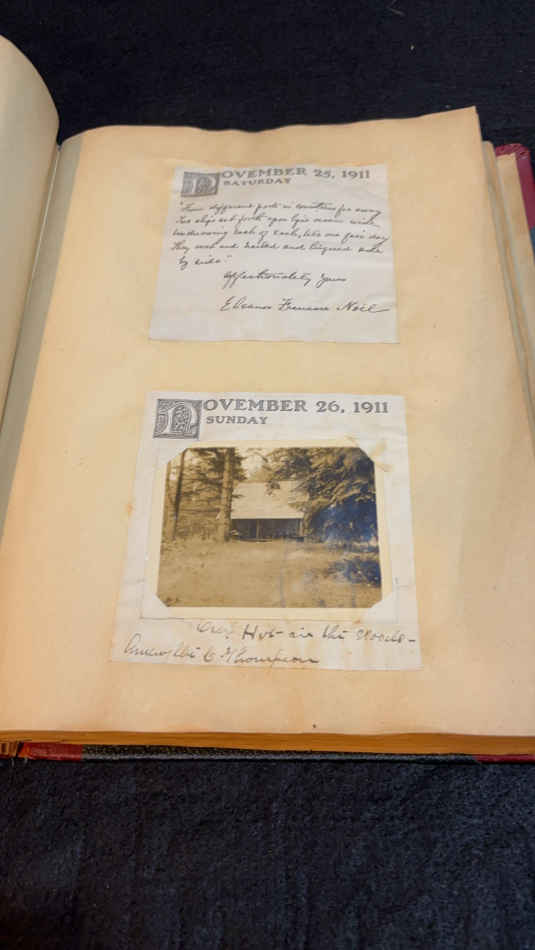 NOVEMBER 25, 1911
SATURDAY
"From different ports in countries far away
Two ships set forth upon life's ocean wide,
each of each, till one fair day
They met and hailed and side
by side."
Affectionately yours
Eleanor Noël
NOVEMBER 26, 1911
SUNDAY
Our Hut in the Woods—
Thompson